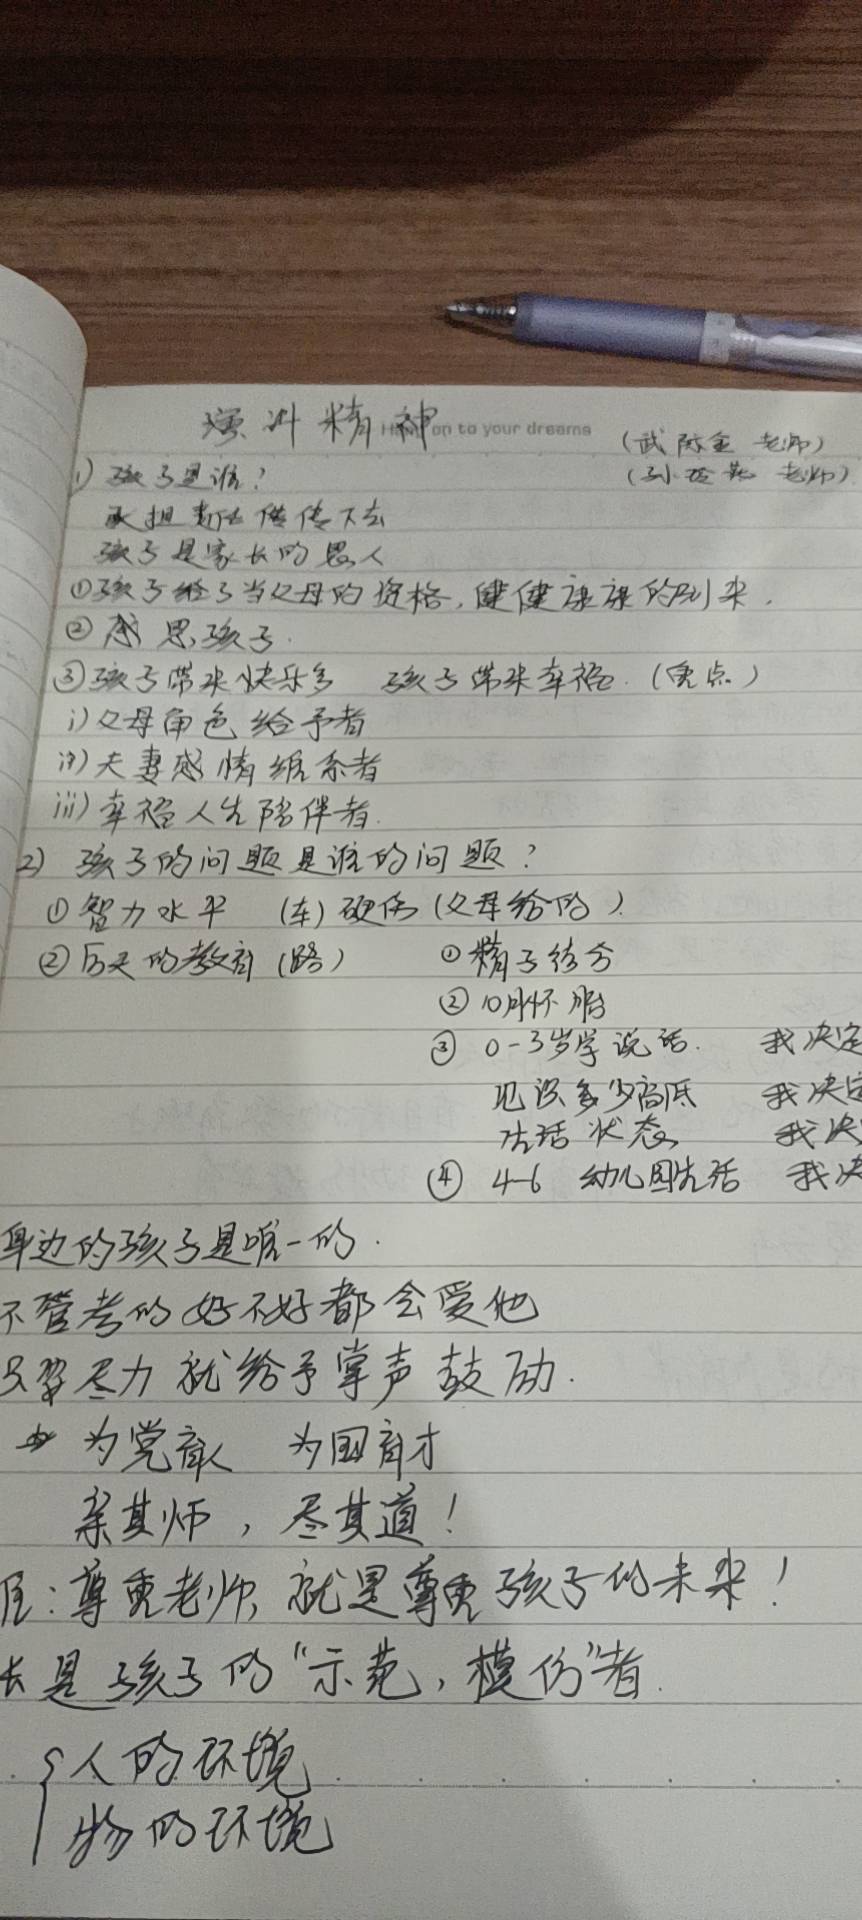 演讲精神
on to your dreams
(武 金 老师)
(孙 老师)
1) 孩子是谁?
承担责任 传下去
孩子是家长的恩人
①孩子给了当父母的资格,健健康康的到来.
②感恩孩子.
③孩子带来快乐多 孩子带来幸福.(重点)
i)父母角色给予者
ii)夫妻感情维系者
iii)幸福人生陪伴者.
2) 孩子的问题是谁的问题?
①智力水平 (车) 硬伤(父母给的).
②后天的教育(路) ①精子结合
②10月怀胎
③ 0-3岁学说话. 我决定
见识多少高低 我决定
生活状态 我决
④ 4-6 幼儿园生活 我决
身边的孩子是唯一的.
不管考的好不好都会爱他
只要尽力就给予掌声鼓励.
为党育人 为国育才
亲其师,尽其道!
尊重老师,就是尊重孩子的未来!
长是孩子的“示范,模仿”者.
人的环境
物的环境